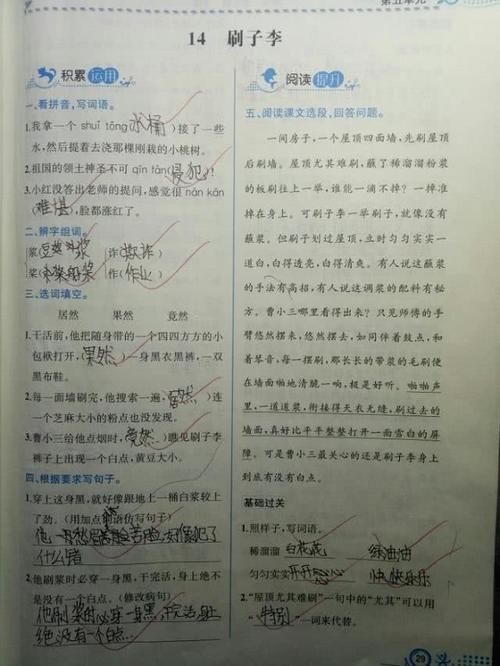 第五单元
14 刷子李
积累 运用
一、看拼音,写词语。
1.我拿一个 shuǐ tǒng(水桶)接了一些
水,然后提着去浇那棵刚栽的小桃树。
2.祖国的领土神圣不可 qīn fàn(侵犯)!
3.小红没答出老师的提问,感觉很 nán kān
(难堪),脸都涨红了。
二、辨字组词。
浆(豆浆) 诈(欺诈)
桨(船桨) 作(作业)
三、选词填空。
居然 果然 竟然
1.干活前,他把随身带的一个四四方方的小
包袱打开,(果然)一身黑衣黑裤,一双
黑布鞋。
2.每一面墙刷完,他搜索一遍,(居然)连
一个芝麻大小的粉点也没发现。
3.曹小三给他点烟时,(竟然)瞧见刷子李
裤子上出现一个白点,黄豆大小。
四、根据要求写句子。
1.穿上这身黑,就好像跟地上一桶白浆较上
了劲。(用加点的词语仿写句子)
他苦脸,好像犯了
什么错
2.他刷浆时必穿一身黑,干完活,身上绝不
是没有一个白点。(修改病句)
他刷浆时必穿一身黑,干完活,身上
绝没有一个白点。
阅读 提升
五、阅读课文选段,回答问题。
一间房子,一个屋顶四面墙,先刷屋顶
后刷墙。屋顶尤其难刷,蘸了稀溜溜粉浆
的板刷往上一举,谁能一滴不掉?一掉准
掉在身上。可刷子李一举刷子,就像没有
蘸浆。但刷子划过屋顶,立时匀匀实实一
道白,白得透亮,白得清爽。有人说这蘸浆
的手法有高招,有人说这调浆的配料有秘
方。曹小三哪里看得出来?只见师傅的手
臂悠然摆来,悠然摆去,如同伴着鼓点,和
着琴音,每一摆刷,那长长的带浆的毛刷便
在墙面啪地清脆一响,极是好听。啪啪声
里,一道道浆,衔接得天衣无缝,刷过去的
墙面,真好比平平整整打开一面雪白的屏
障。可是曹小三最关心的还是刷子李身上
到底有没有白点。
基础过关
1.照样子,写词语。
稀溜溜 白花花 绿油油
匀匀实实 开开心心 快快乐乐
2.“屋顶尤其难刷”一句中的“尤其”可以用
“特别”一词来代替。
29